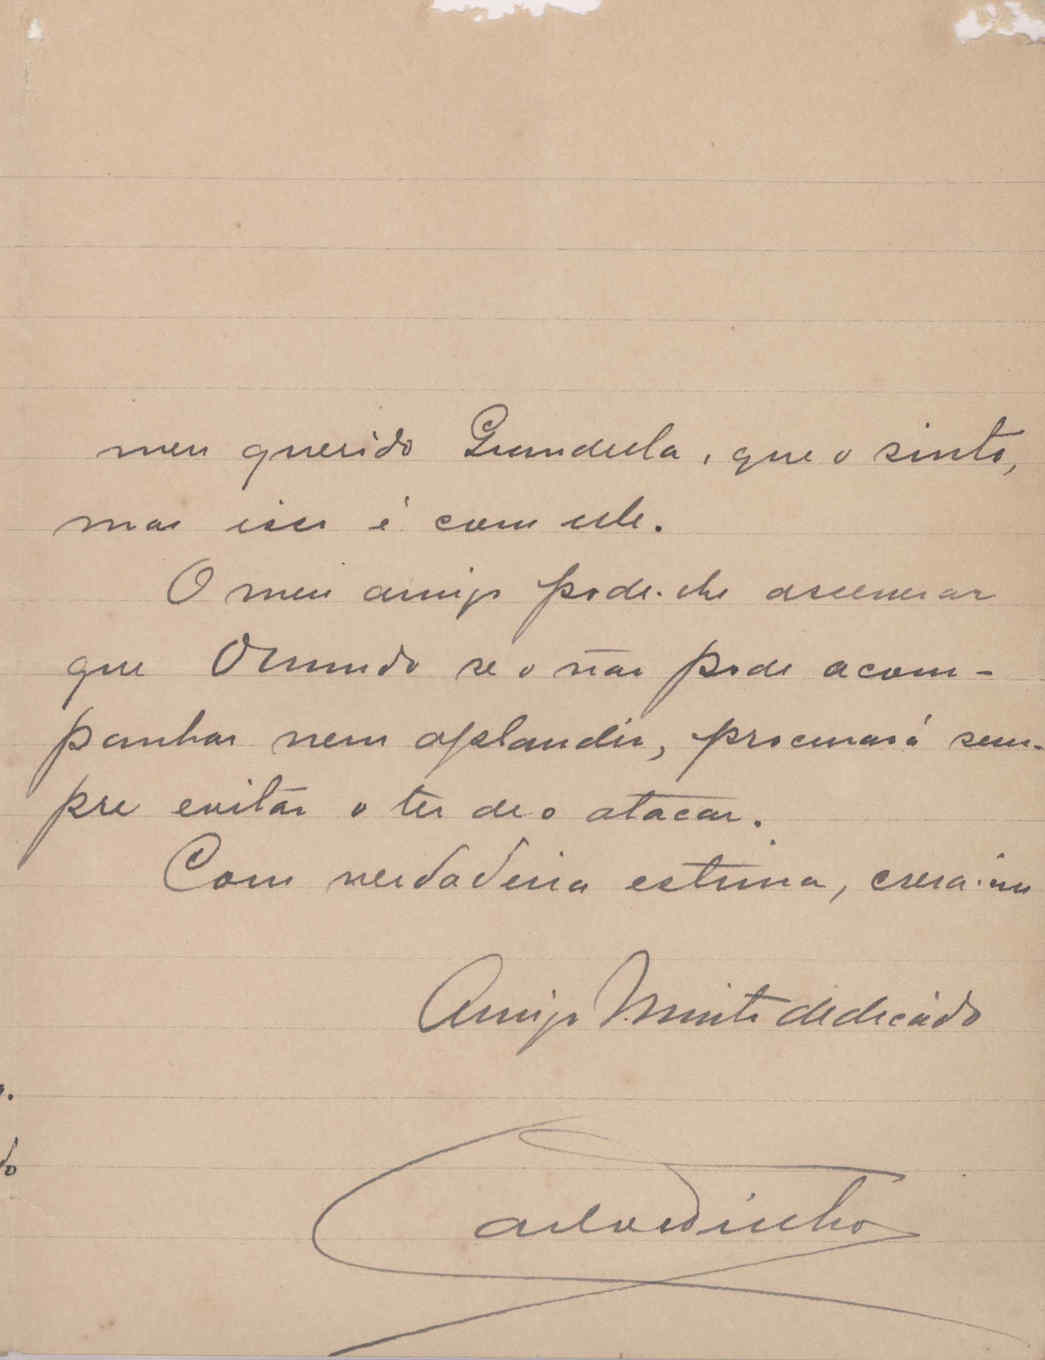 meu querido Grandella, que o sinto,
mas isso é com elle.
O meu amigo pode-lhe assegurar
que O Mundo se o não pode acom-
panhar nem aplaudir, procurará sem-
pre evitar o ter de o atacar.
Com verdadeira estima, creia-me
Amigo Muito dedicado